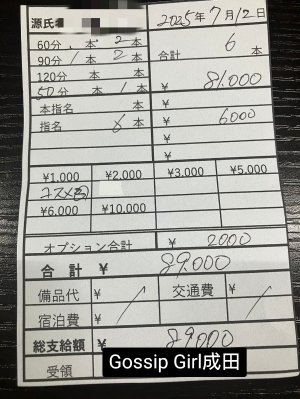 源氏名
2025年7月12日
60分 本 2本
90分 1本 2本
合計 6本
120分 本 本
50分 本 1本
¥ 81,000
本指名 本
¥
指名 6本
¥ 6000
¥
¥
¥1,000 ¥2,000 ¥3,000 ¥5,000
コスメ
¥6,000 ¥10,000
オプション合計 ¥ 2000
合計 ¥ 89,000
備品代 ¥ 交通費 ¥
宿泊費 ¥
総支給額 ¥ 89,000
受領
Gossip Girl成田